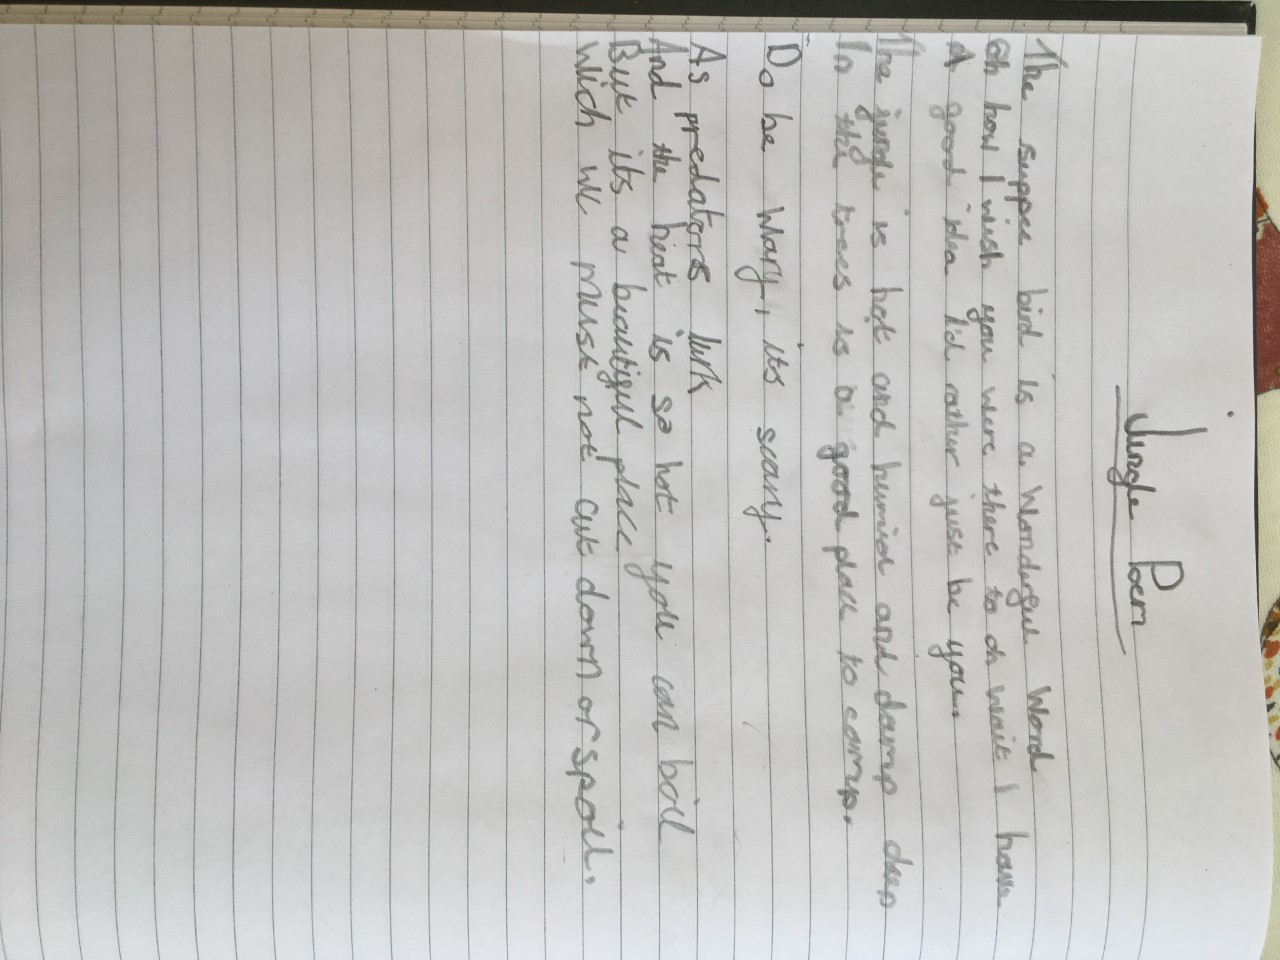 Jungle Poem
The suppee bird is a wonderful word
oh how I wish you were there to oh wait I have
A good idea I'd rather just be you.
The jungle is hot and humid and damp deep
In the trees is a good place to camp.
Do be wary, its scary.
As predators lurk
And the heat is so hot you can boil
But its a beautiful place
Which we must not cut down or spoil.